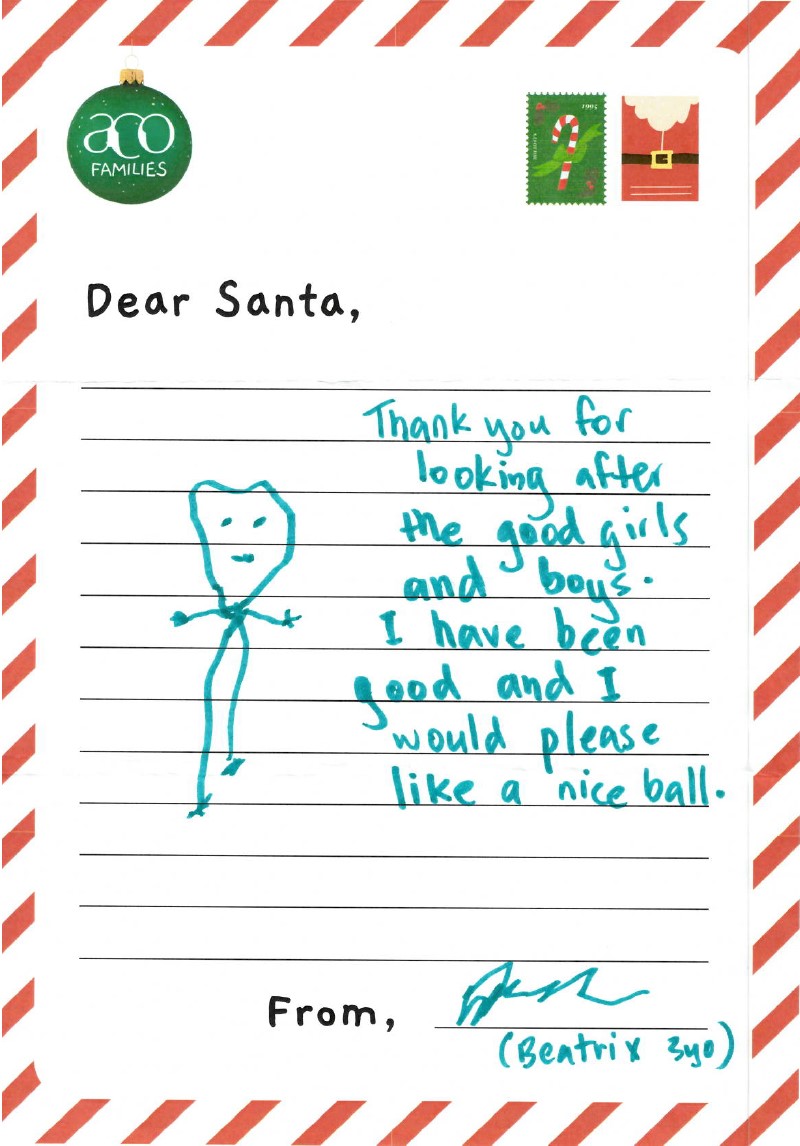 aco
FAMILIES
1995
Dear Santa,
Thank you for
looking after
the good girls
and boys.
I have been
good and I
would please
like a nice ball.
From,
(Beatrix 3yo)